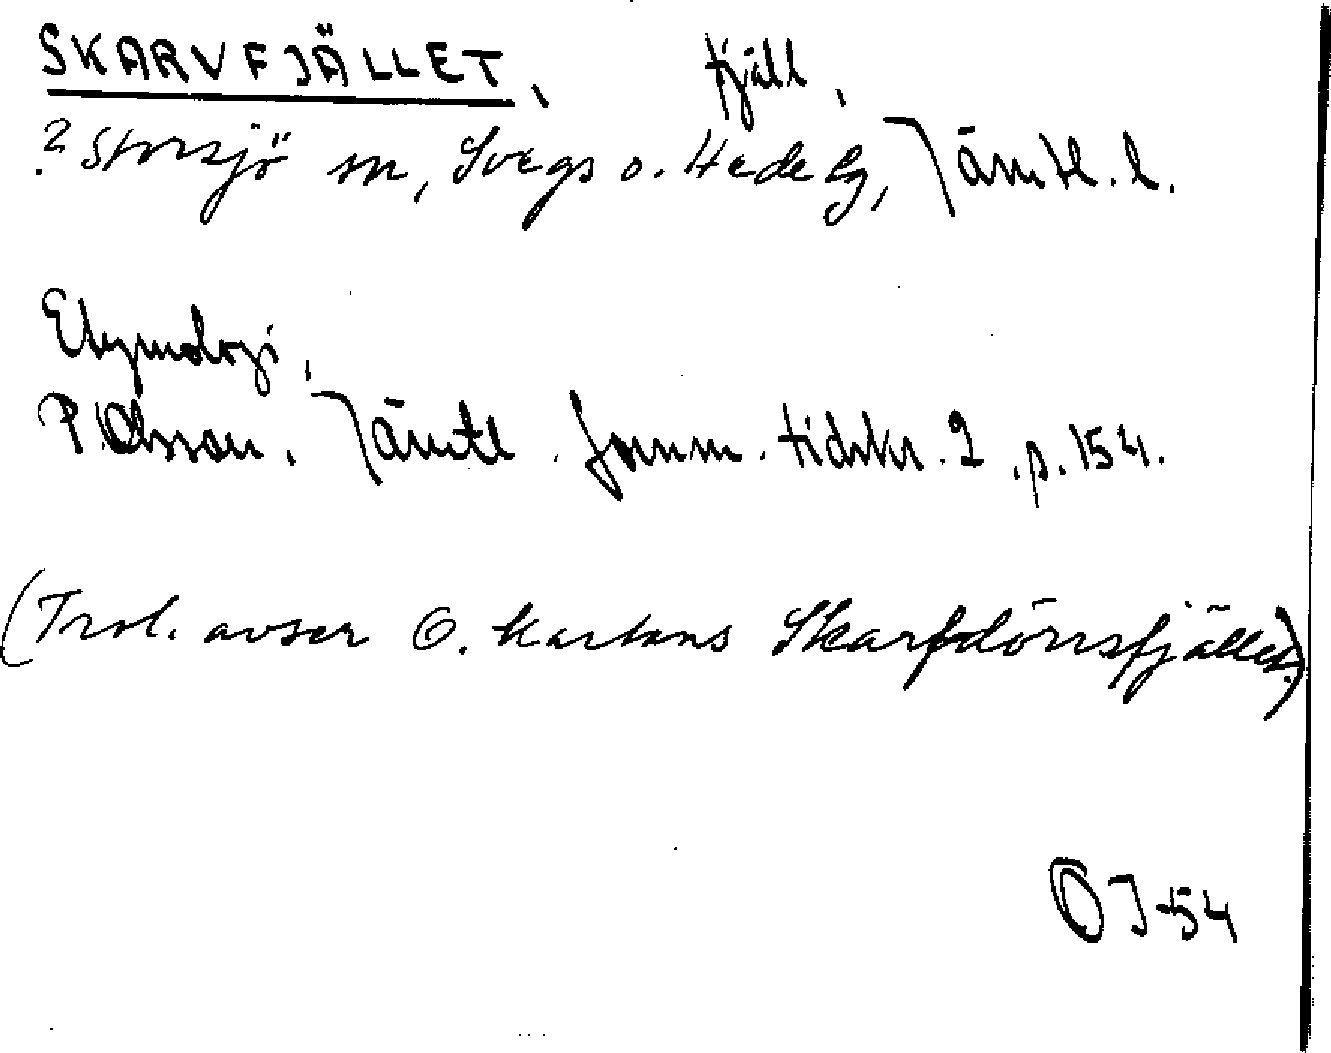 SKARVFJÄLLET, fjäll,
? Storsjö sn, Svegs o. Hede lg, Jämtl. l.
Etymologi,
P. Olsson. Jämtl. fornm. tidskr. 2, p. 154.
(Trol. avser G. kartans Skarfdörrsfjället.)
OJ-54